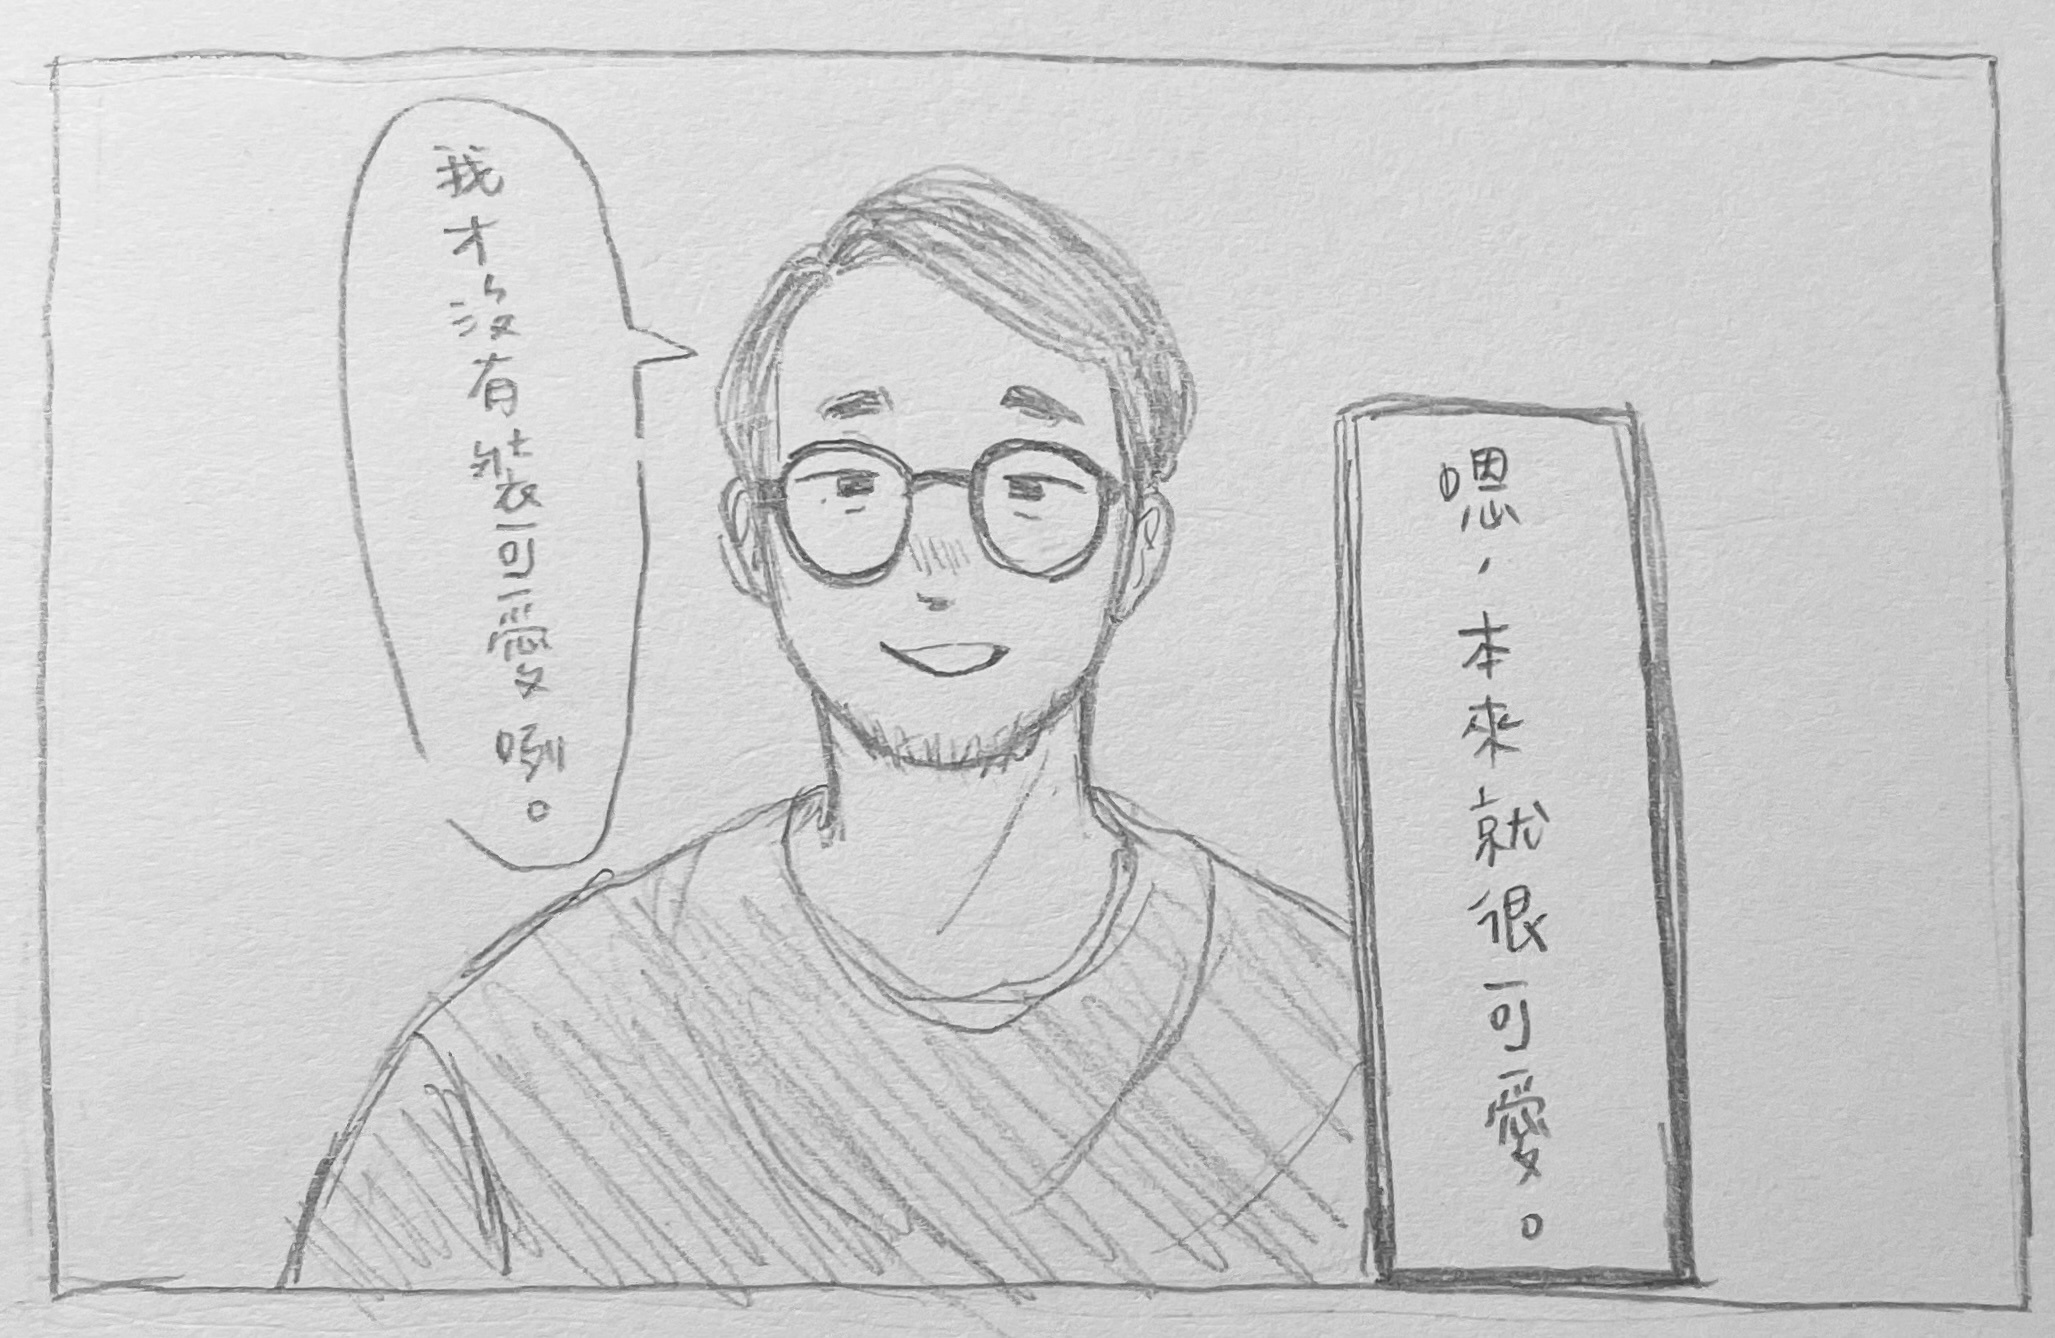 我才沒有裝可愛咧。
嗯，本來就很可愛。